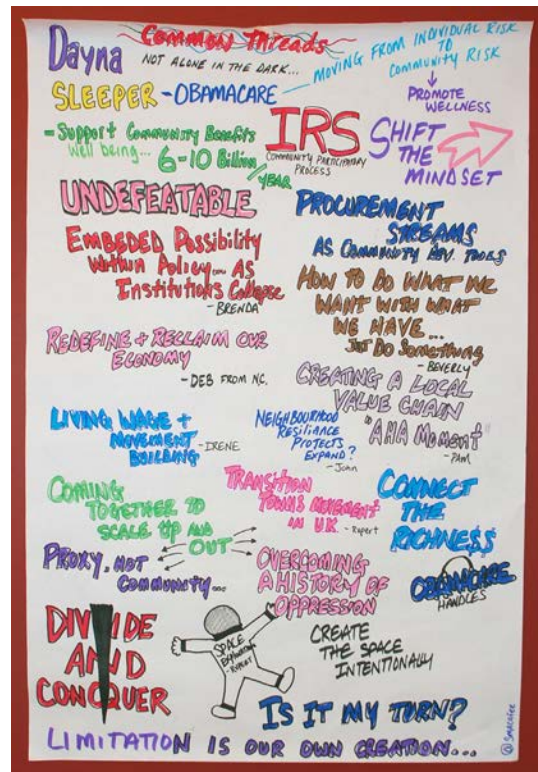 Dayna
Common Threads
NOT ALONE IN THE DARK...
MOVING FROM INDIVIDUAL RISK
TO
COMMUNITY RISK
PROMOTE
WELLNESS
SLEEPER - OBAMACARE
- Support Community Benefits
well being...
6-10 Billion/
YEAR
IRS
COMMUNITY PARTICIPATORY
PROCESS
SHIFT
THE
MINDSET
UNDEFEATABLE
PROCUREMENT
STREAMS
AS COMMUNITY DEV. TOOLS
EMBEDED Possibility
Within Policy... AS
Institutions Collapse
- BRENDA
HOW TO DO WHAT WE
WANT WITH WHAT
WE HAVE...
JUST DO SOMETHING
- BEVERLY
REDEFINE + RECLAIM OUR
ECONOMY
- DEB FROM NC.
CREATING A LOCAL
VALUE CHAIN
"AHA MOMENT"
- PAM
LIVING WAGE +
MOVEMENT
BUILDING
- IRENE
NEIGHBOURHOOD
RESILIANCE
PROJECTS
EXPAND?
- John
COMING
TOGETHER TO
SCALE UP AND
OUT
TRANSITION
TOWNS MOVEMENT
IN UK
- Rupert
CONNECT
THE
RICHNE$$
PROXY. NOT
COMMUNITY...
OVERCOMING
A HISTORY OF
OPPRESSION
OBAMACARE
HANDLES
DIVIDE
AND
CONQUER
SPACE
- RUPERT
CREATE
THE SPACE
INTENTIONALLY
IS IT MY TURN?
LIMITATION IS OUR OWN CREATION...